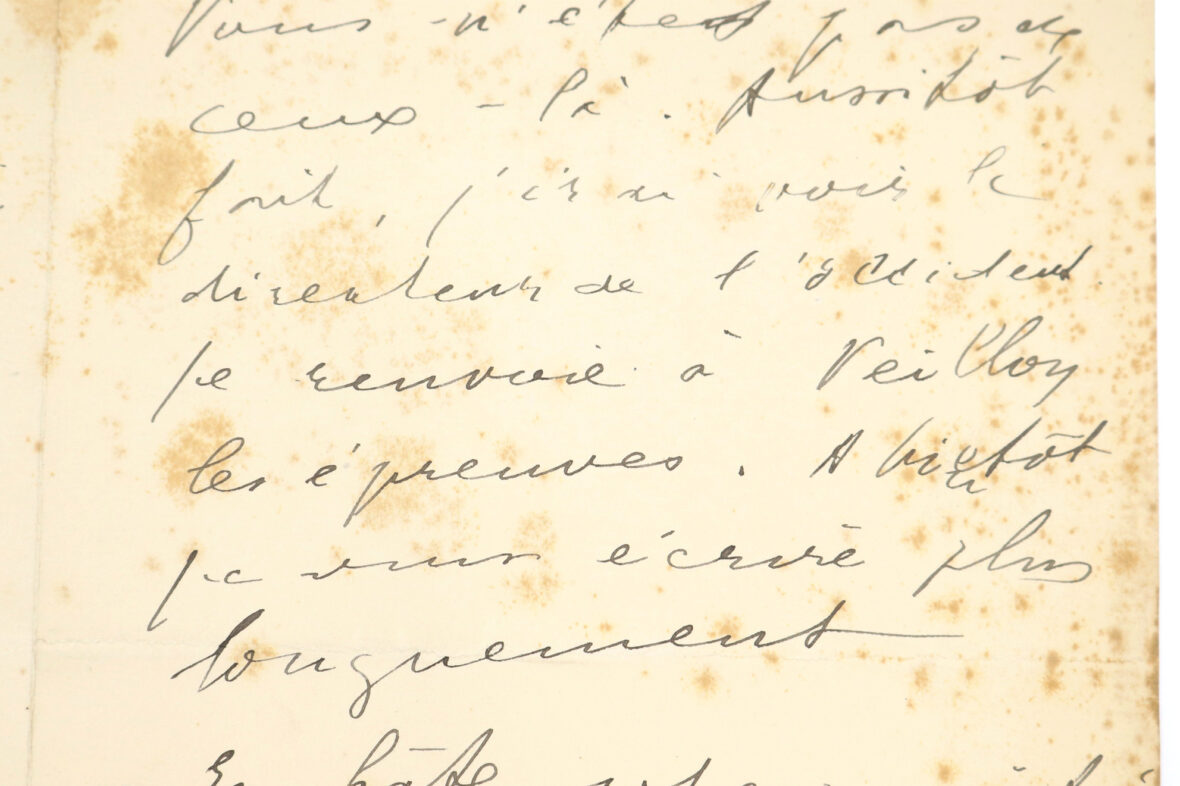 Vous n'êtes pas de
ceux-là. Aussitôt
fait, j'irai voir le
directeur de l'occident
je renvoie à
les épreuves. A bientôt
je vous écrire plus
longuement
En hâte